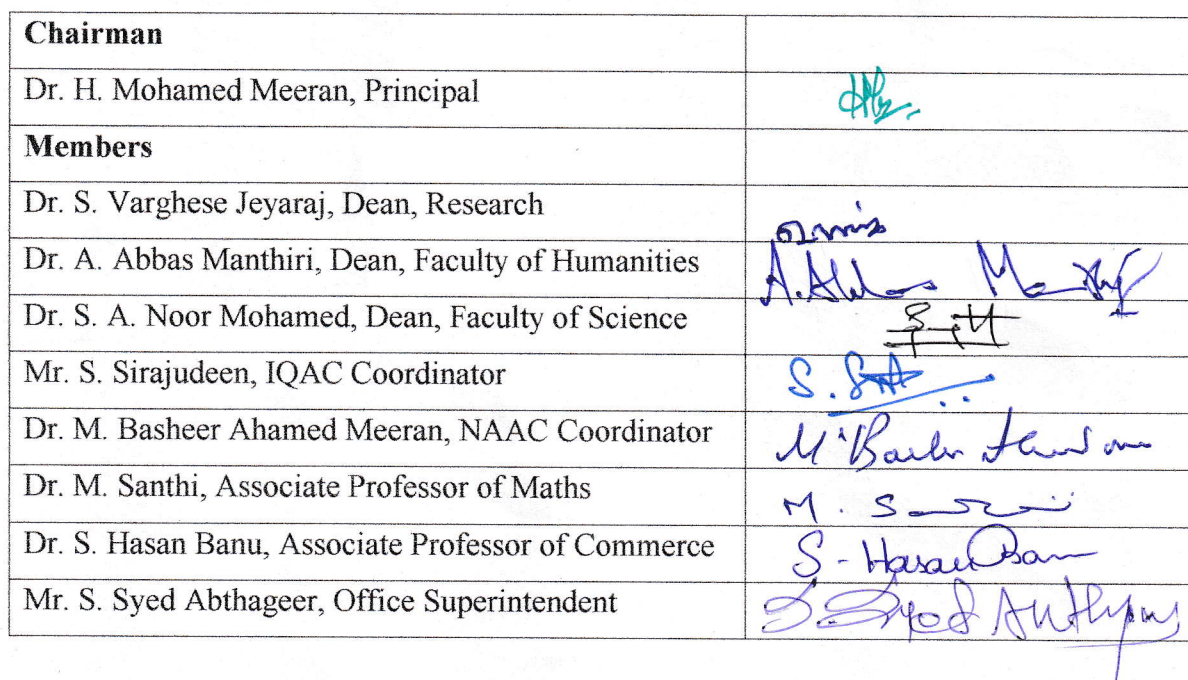 Chairman
Dr. H. Mohamed Meeran, Principal
Members
Dr. S. Varghese Jeyaraj, Dean, Research
Dr. A. Abbas Manthiri, Dean, Faculty of Humanities
A. Abbas
Dr. S. A. Noor Mohamed, Dean, Faculty of Science
Mr. S. Sirajudeen, IQAC Coordinator
Dr. M. Basheer Ahamed Meeran, NAAC Coordinator
Dr. M. Santhi, Associate Professor of Maths
Dr. S. Hasan Banu, Associate Professor of Commerce
S - Hasan Banu
Mr. S. Syed Abthageer, Office Superintendent
S. Syed